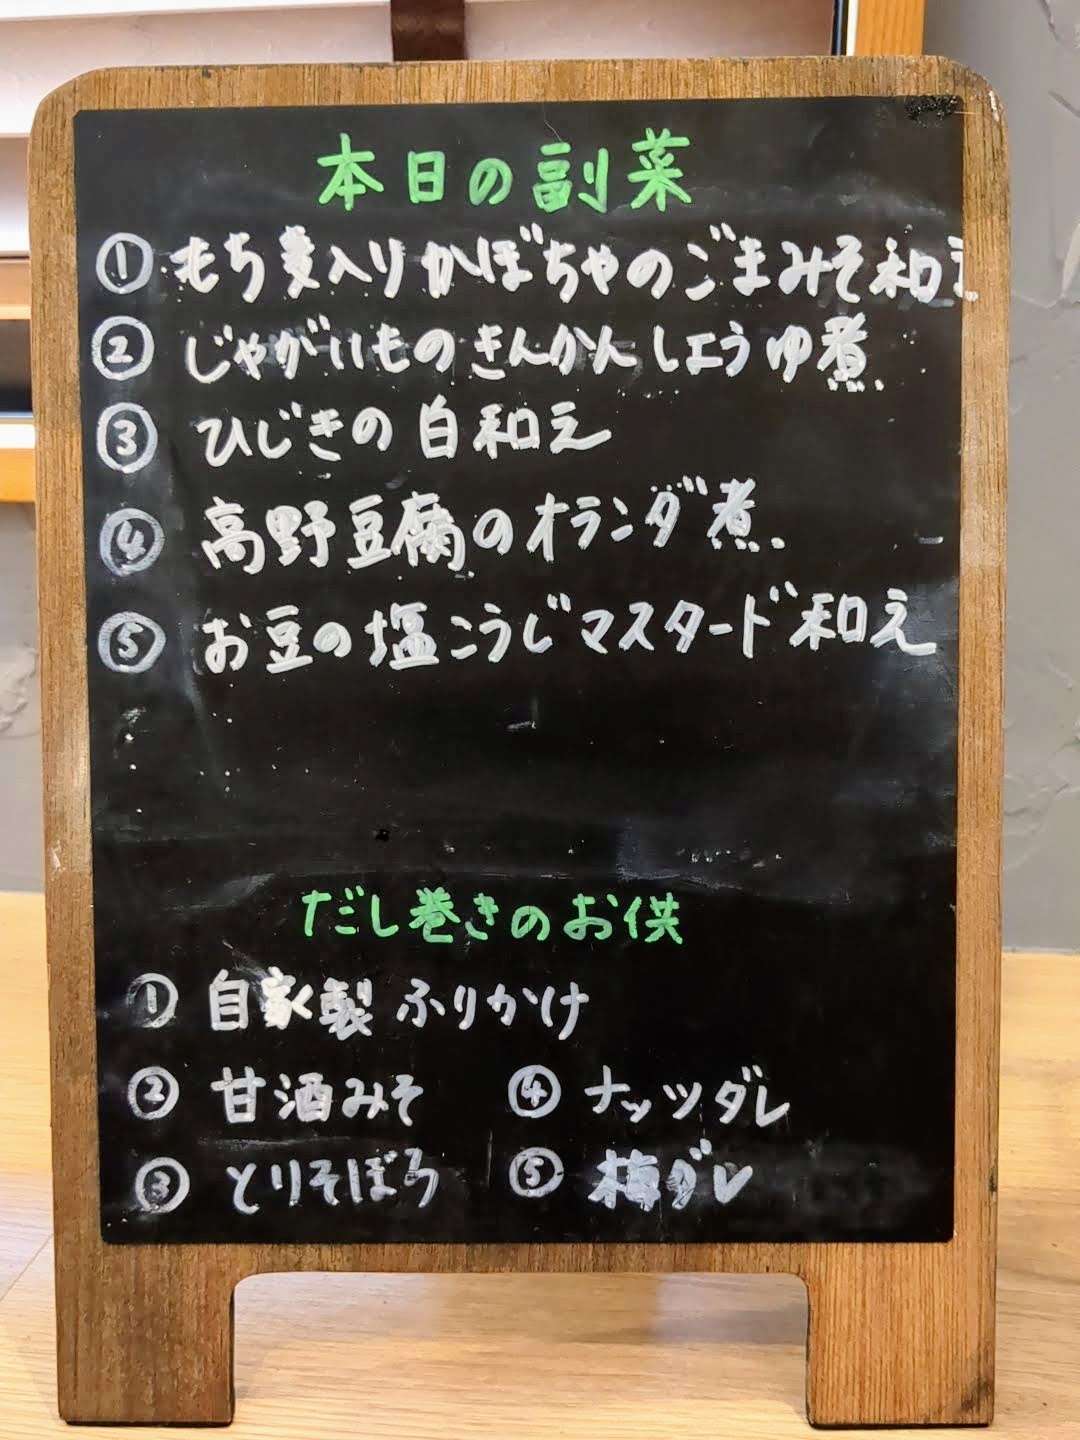 本日の副菜
① もち麦入りかぼちゃのごまみそ和え
② じゃがいものきんかんしょうゆ煮
③ ひじきの白和え
④ 高野豆腐のオランダ煮
⑤ お豆の塩こうじマスタード和え
だし巻きのお供
① 自家製ふりかけ
② 甘酒みそ ④ ナッツダレ
③ とりそぼろ ⑤ 梅ダレ